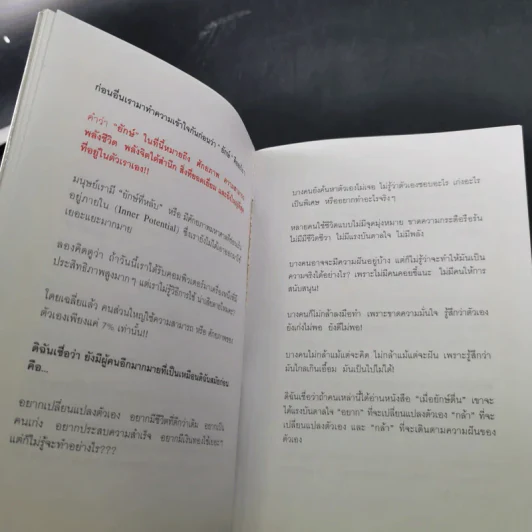 ก่อนอื่นเรามาทำความเข้าใจกันก่อนว่า "ยักษ์"
คำว่า "ยักษ์" ในที่นี้หมายถึง ศักยภาพ
พลังชีวิต พลังจิตใต้สำนึก สิ่งที่ยอดเยี่ยม
ที่อยู่ในตัวเราเอง!!
มนุษย์เรามี "ยักษ์ที่หลับ" หรือ มีศักยภาพมหาศาลที่ซ่อนอยู่
อยู่ภายใน (Inner Potential) ซึ่งเรายังไม่ได้เอาออกมาใช้
เยอะแยะมากมาย
ลองคิดดูว่า ถ้าวันนี้เราได้รับคอมพิวเตอร์มาเครื่องหนึ่งที่มี
ประสิทธิภาพสูงมากๆ แต่เราไม่รู้วิธีการใช้
โดยเฉลี่ยแล้ว คนส่วนใหญ่ใช้ความสามารถ หรือ ศักยภาพของ
ตัวเองเพียงแค่ 7% เท่านั้น!!
ดิฉันเชื่อว่า ยังมีผู้คนอีกมากมายที่เป็นเหมือนดิฉันสมัยก่อน
คือ...
อยากเปลี่ยนแปลงตัวเอง อยากมีชีวิตที่ดีกว่าเดิม อยากเป็น
คนเก่ง อยากประสบความสำเร็จ อยากมีเงินทองใช้เยอะๆ
แต่ก็ไม่รู้จะทำอย่างไร???
บางคนยังค้นหาตัวเองไม่เจอ ไม่รู้ว่าตัวเองชอบอะไร เก่งอะไร
เป็นพิเศษ หรืออยากทำอะไรจริงๆ
หลายคนใช้ชีวิตแบบไม่มีจุดมุ่งหมาย ขาดความกระตือรือร้น
ไม่มีมีชีวิตชีวา ไม่มีแรงบันดาลใจ ไม่มีพลัง
บางคนอาจจะมีความฝันอยู่บ้าง แต่ก็ไม่รู้ว่าจะทำให้มันเป็น
ความจริงได้อย่างไร? เพราะไม่มีคนคอยชี้แนะ ไม่มีคนให้การ
สนับสนุน!
บางคนก็ไม่กล้าลงมือทำ เพราะขาดความมั่นใจ รู้สึกว่าตัวเอง
ยังเก่งไม่พอ ยังดีไม่พอ!
บางคนไม่กล้าแม้แต่จะคิด ไม่กล้าแม้แต่จะฝัน เพราะรู้สึกว่า
มันไกลเกินเอื้อม มันเป็นไปไม่ได้!
ดิฉันเชื่อว่าถ้าคนเหล่านี้ได้อ่านหนังสือ "เมื่อยักษ์ตื่น" เขาจะ
ได้แรงบันดาลใจ "อยาก" ที่จะเปลี่ยนแปลงตัวเอง "กล้า" ที่จะ
เปลี่ยนแปลงตัวเอง และ "กล้า" ที่จะเดินตามความฝันของ
ตัวเอง